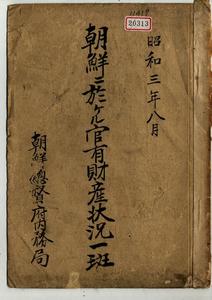 昭和三年八月
朝鮮ニ於ケル官有財産状況一班
朝鮮總督府内務局
20313